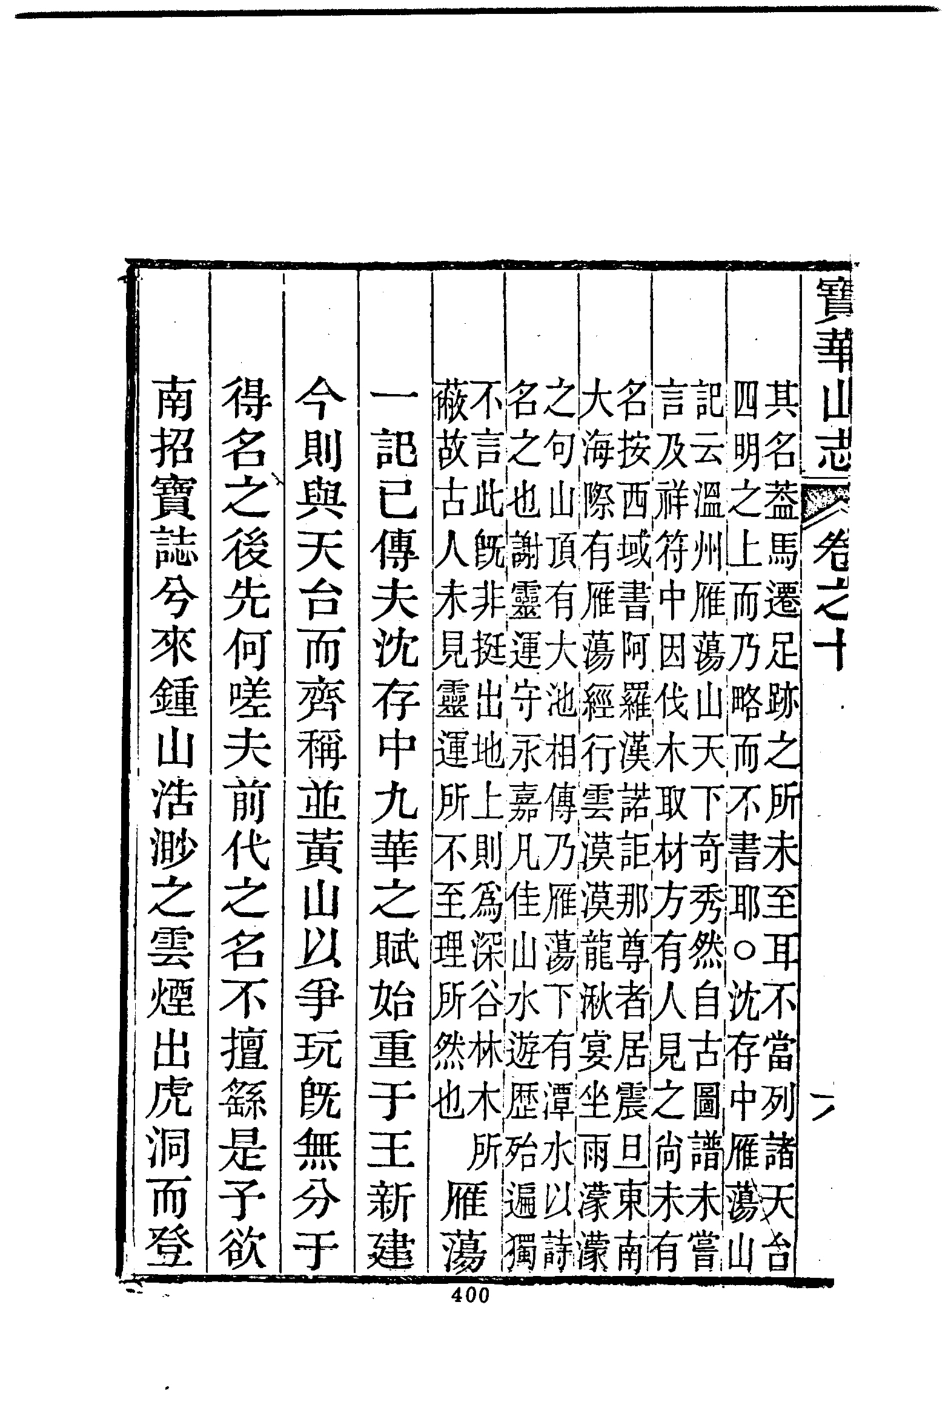 寶華山志 卷之十
其名葢馬遷足跡之所未至耳不當列諸天台
四明之上而乃略而不書耶○沈存中雁蕩山
記云溫州雁蕩山天下奇秀然自古圖譜未嘗
言及祥符中因伐木取材方有人見之尙未有
名按西域書阿羅漢諾詎那尊者居震旦東南
大海際有雁蕩經行雲漠漠龍湫宴坐雨濛濛
之句山頂有大池相傳乃雁蕩下有潭水以詩
名之也謝靈運守永嘉凡佳山水遊歴殆遍獨
不言此旣非挺出地上則爲深谷林木所
蔽故古人未見靈運所不至理所然也
雁蕩
一記已傳夫沈存中九華之賦始重于王新建
今則與天台而齊稱並黃山以爭玩旣無分于
得名之後先何嗟夫前代之名不擅繇是予欲
南招寶誌兮來鍾山浩渺之雲煙出虎洞而登
400